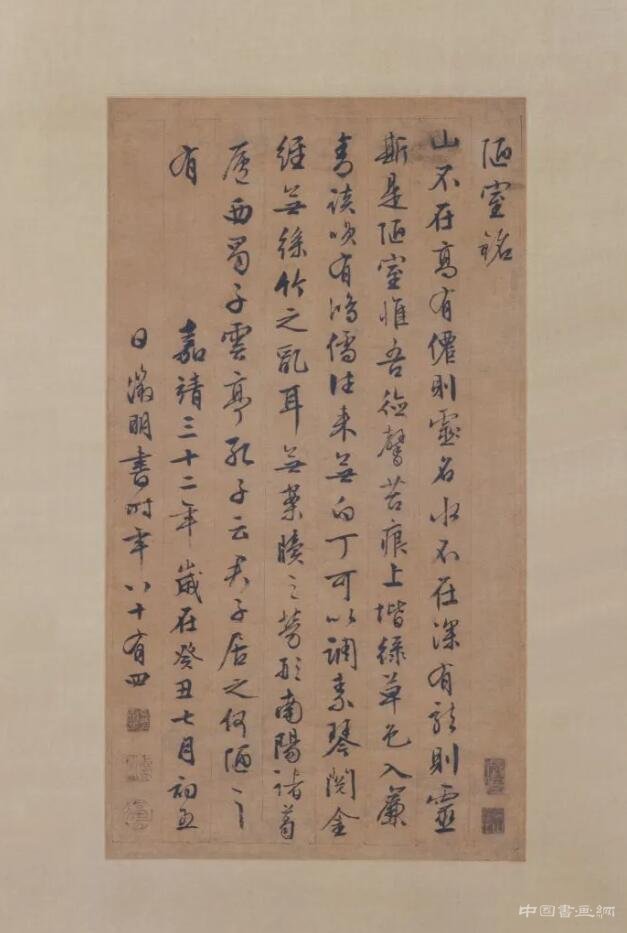 陋室銘
山不在髙有僊則靈名水不在深有龍則靈
斯是陋室惟吾德馨苔痕上堦緑草色入簾
青談咲有鴻儒往来無白丁可以調素琴閲金
經無絲竹之亂耳無案牘之勞形南陽諸葛
廬西蜀子雲亭孔子云君子居之何陋之
有 嘉靖三十二年歲在癸丑七月初五
日徵明書時年八十有四
中国書画網